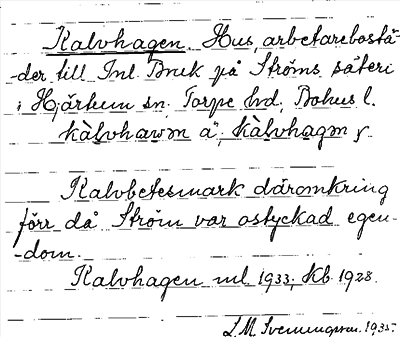 Kalvhagen. Hus, arbetarebostä-
-der till Inl. Bruk på Ströms säteri
i Hjärtum sn. Torpe hd, Bohus l.
kàlvhawən ä, kàlvhagən y.
Kalvbetesmark däromkring
förr då Ström var ostyckad egen-
-dom.
Kalvhagen ml 1933, Kb 1928.
L.M. Svenungsson. 1935.